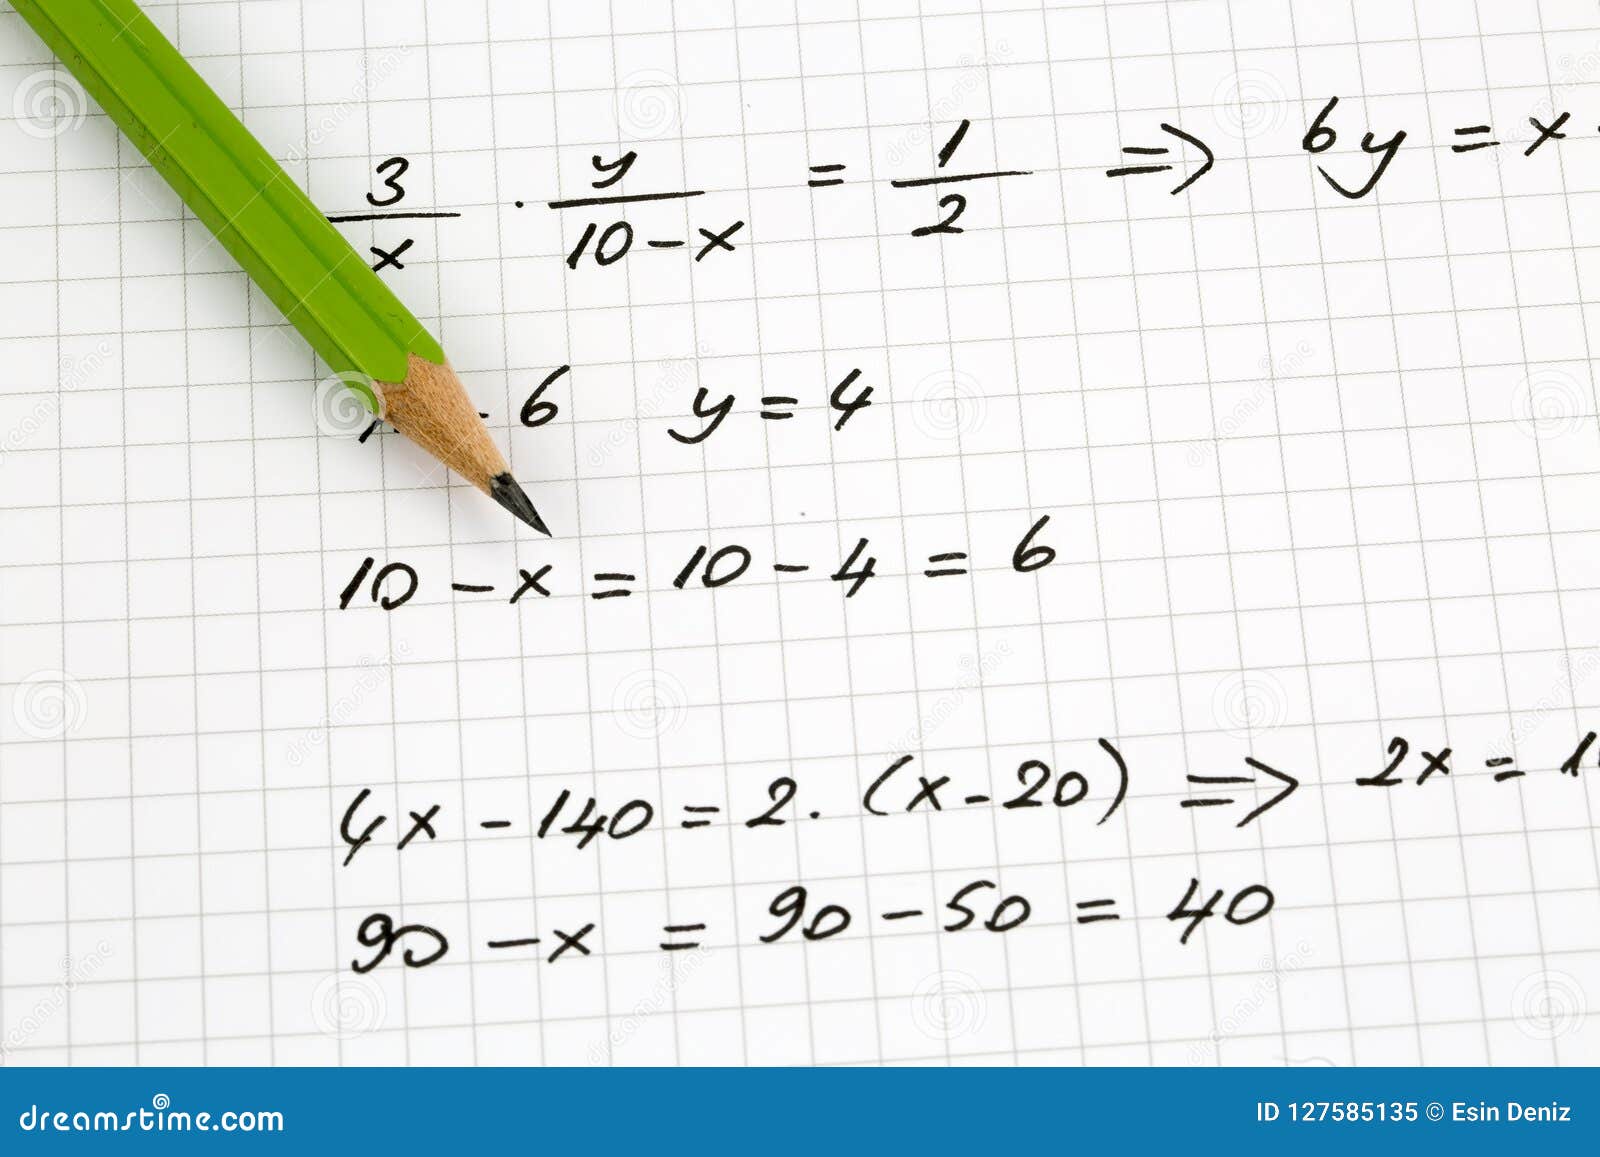 3/x · y/(10-x) = 1/2 ⇒ 6y = x
6 y = 4
10 - x = 10 - 4 = 6
4x - 140 = 2. (x - 20) ⇒ 2x = 1
90 - x = 90 - 50 = 40
dreamstime.com ID 127585135 © Esin Deniz